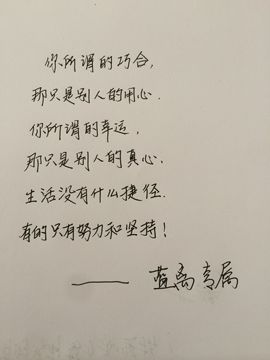 你所谓的巧合,
那只是别人的用心.
你所谓的幸运,
那只是别人的真心.
生活没有什么捷径.
有的只有努力和坚持!
——蓝离专属